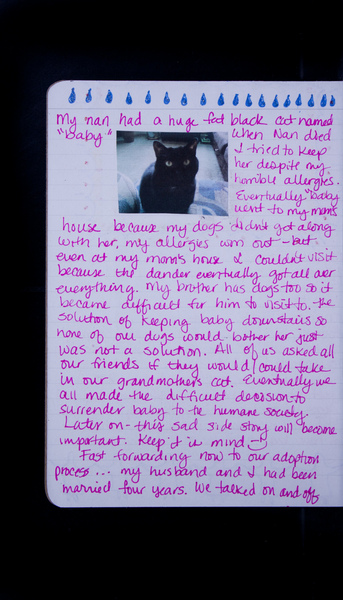 My nan had a huge fat black cat named
"baby" When Nan died
I tried to keep
her despite my
horrible allergies.
Eventually "baby
went to my mom's
house because my dogs didn't get along
with her, my allergies won out - but
even at my mom's house I couldn't visit
because the dander eventually got all over
everything. My brother has dogs too so it
became difficult for him to visit to. the
solution of keeping baby downstairs so
none of our dogs would bother her just
was not a solution. All of us asked all
our friends if they would/could take
in our grandmothers cat. Eventually we
all made the difficult decision to
surrender baby to the humane society.
Later on - this sad side story will become
important. Keep it in mind
Fast forwarding now to our adoption
process... my husband and I had been
married four years. We talked on and off